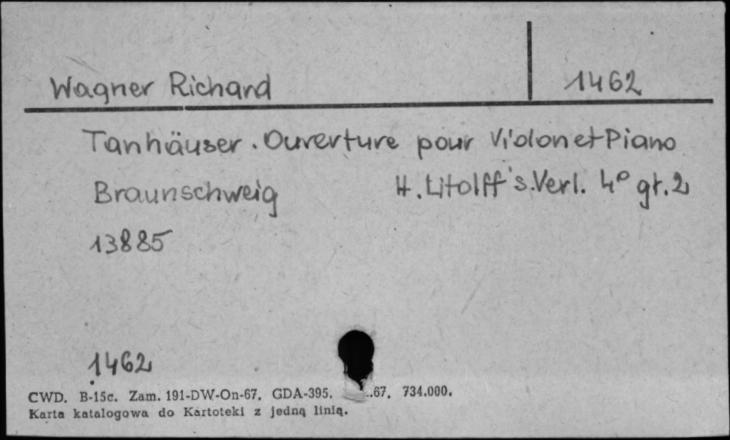 Wagner Richard 1462
Tanhäuser. Ouverture pour Violon et Piano
Braunschweig H. Litolff's. Verl. 4° gt. 2
13885
1462
CWD. B-15c. Zam. 191-DW-On-67. GDA-395. ..67. 734.000.
Karta katalogowa do Kartoteki z jedną linią.